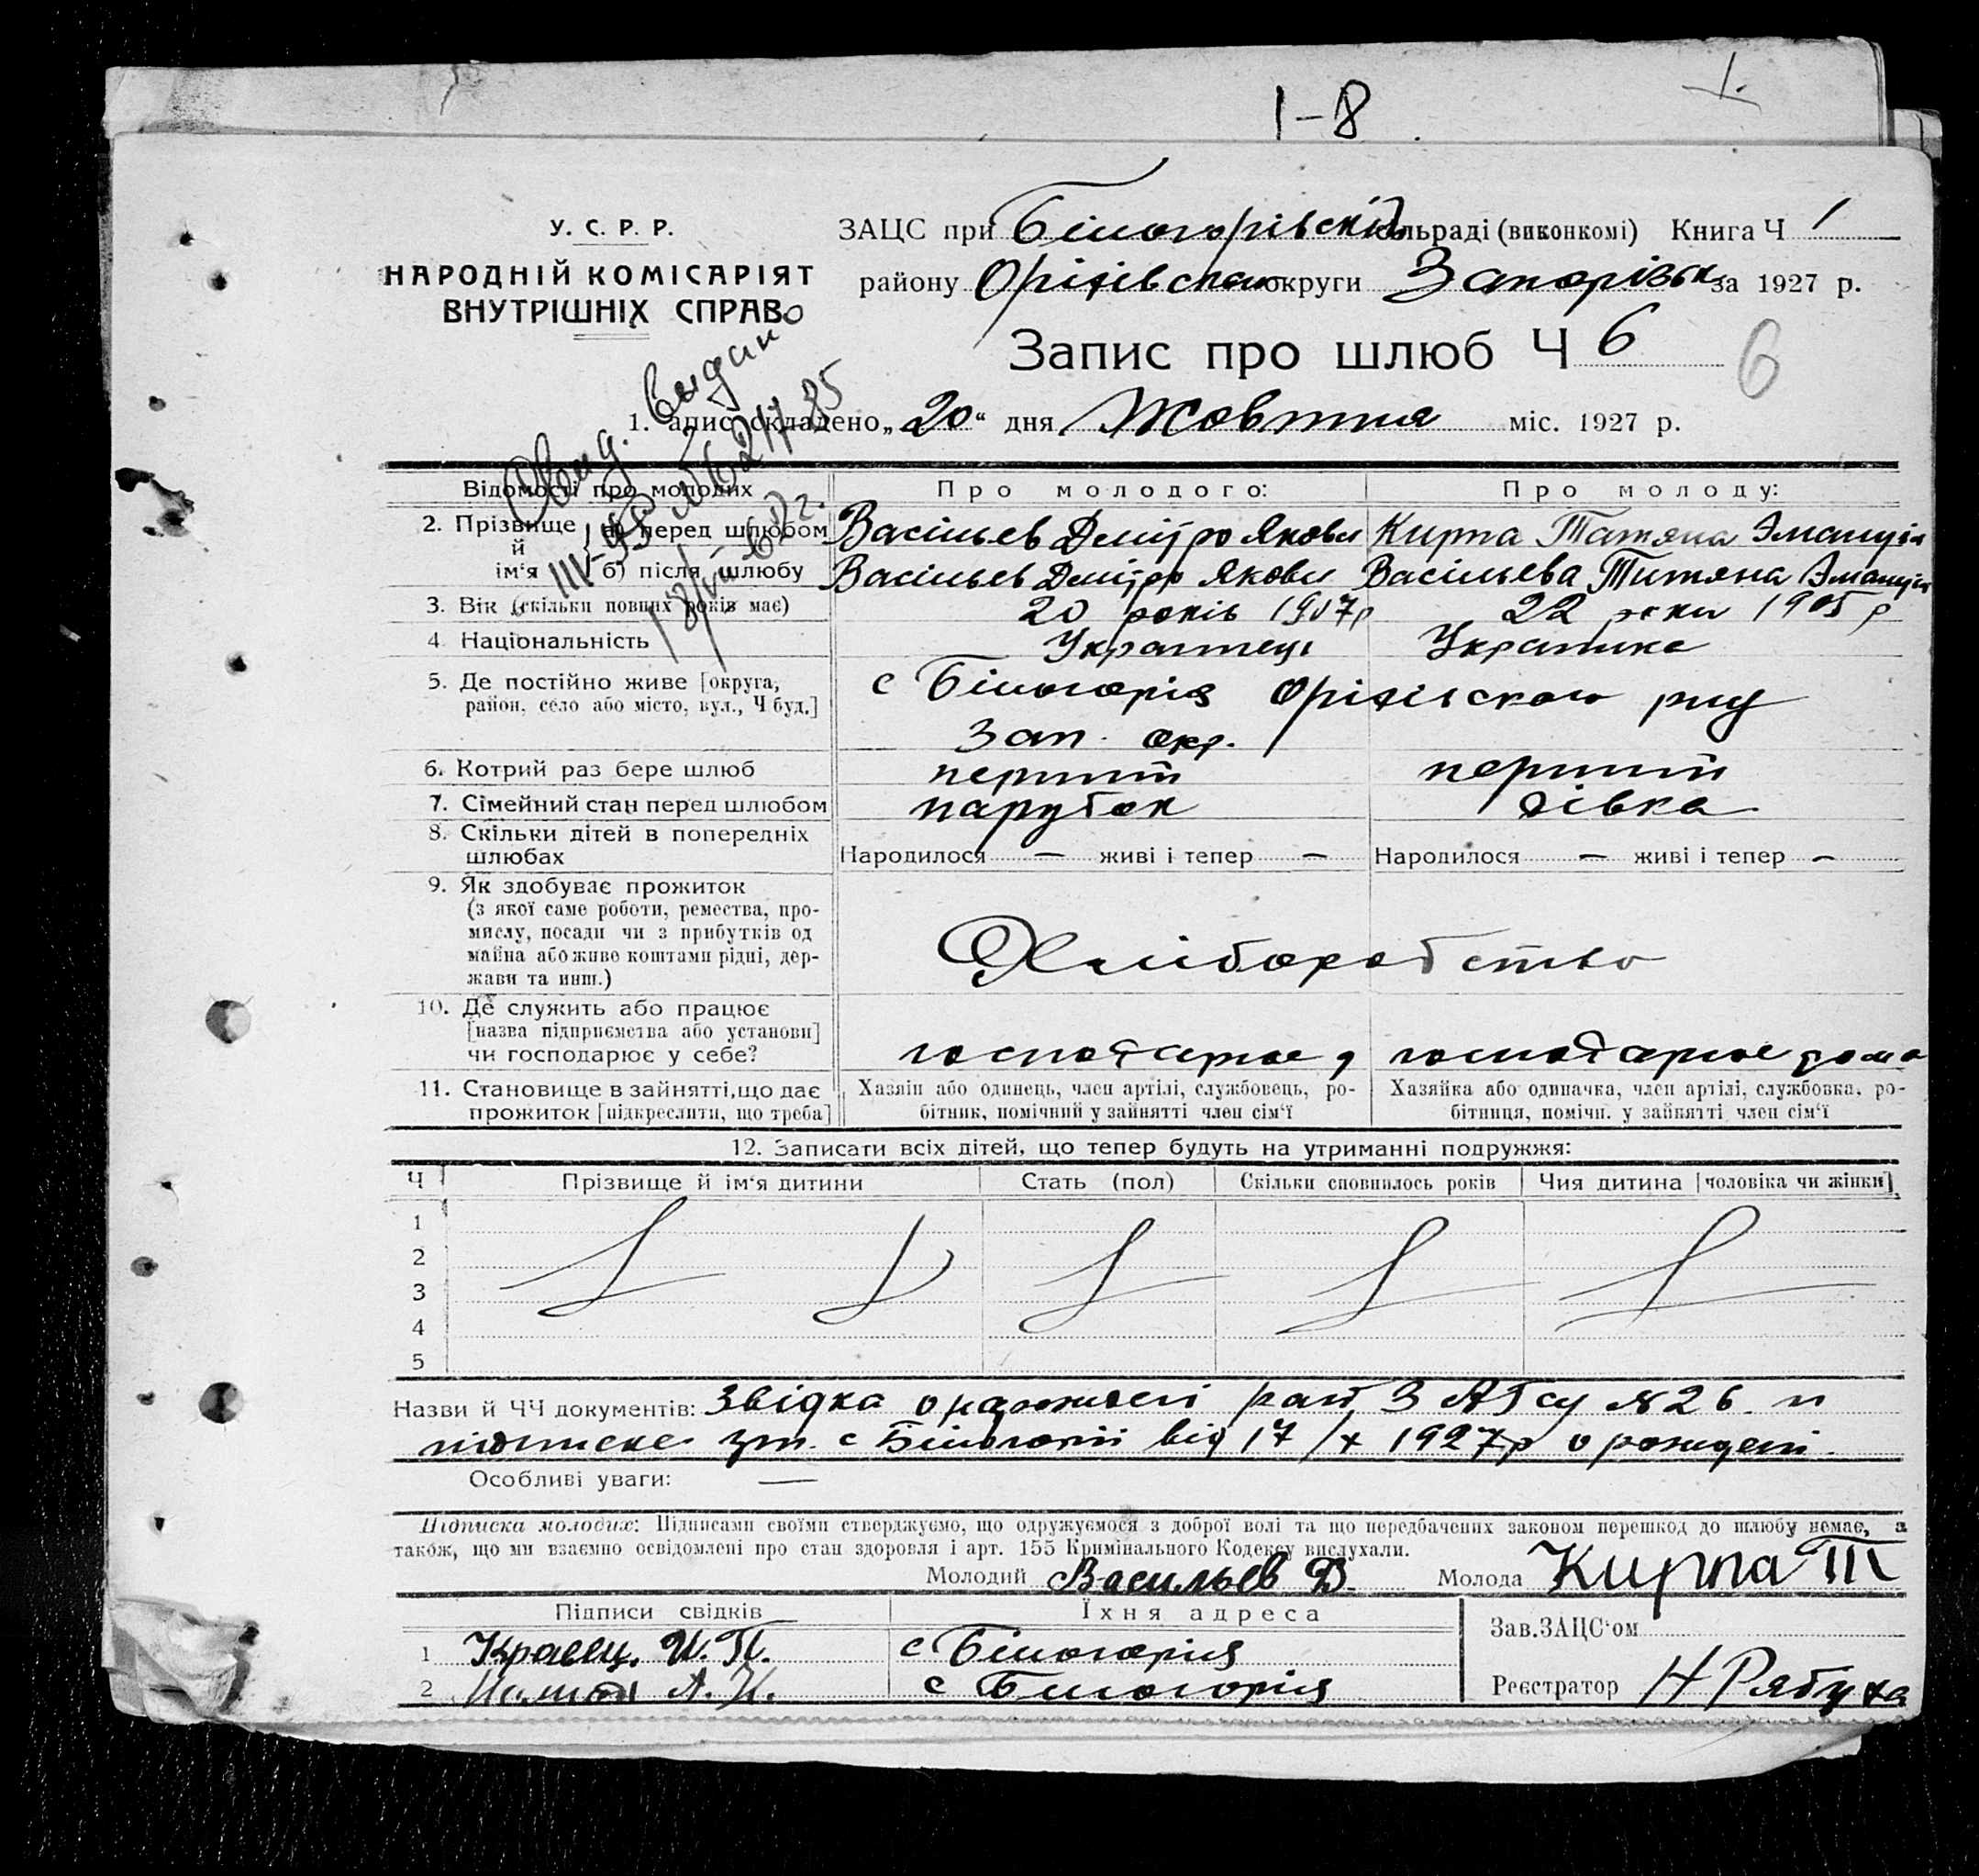 1-8
У. С. Р. Р.
НАРОДНІЙ КОМІСАРІЯТ
ВНУТРІШНІХ СПРАВ
ЗАЦС при Білогорівскій сільраді (виконкомі) Книга Ч 1
району Оріхівском округи Запорізьк за 1927 р.
Запис про шлюб Ч 6
6
1. апис складено „20" дня Жовтня міс. 1927 р.
Свид. выдан
III-ЯР № 621785
18/VII-60 г.
Відомості про молодих
Про молодого:
Про молоду:
2. Прізвище й ім'я
а) перед шлюбом
Васільев Дмітро Якови
Кирпа Татяна Эмануіл
б) після шлюбу
Васільев Дмітро Якови
Васільева Татяна Эмануіл
3. Вік (скільки повних років має)
20 років 1907р
22 роки 1905 р
4. Національність
Украінець
Украинка
5. Де постійно живе [округа,
район, село або місто, вул., Ч буд.]
с Білогорія Оріхівского р-ну
Зап. окр.
6. Котрий раз бере шлюб
перший
перший
7. Сімейний стан перед шлюбом
парубок
дівка
8. Скільки дітей в попередніх
шлюбах
Народилося — живі і тепер —
Народилося — живі і тепер —
9. Як здобуває прожиток
(з якої саме роботи, ремества, про-
мислу, посади чи з прибутків од
майна або живе коштами рідні, дер-
жави та инш.)
Хліборобство
10. Де служить або працює
[назва підприємства або установи]
чи господарює у себе?
господарює д
господарює дома
11. Становище в зайнятті, що дає
прожиток [підкреслити, що треба]
Хазяїн або одинець, член артілі, службовець, ро-
бітник, помічний у зайнятті член сім'ї
Хазяйка або одиначка, член артілі, службовка, ро-
бітниця, помічн. у зайнятті член сім'ї
12. Записати всіх дітей, що тепер будуть на утриманні подружжя:
Ч
Прізвище й ім'я дитини
Стать (пол)
Скільки сповнилось років
Чия дитина [чоловіка чи жінки]
1
2
3
4
5
Назви й ЧЧ документів: Звідка о рай ЗАГСу №26 и
підписке с Білогорії від 17/X 1927р о
Особливі уваги: —
Підписка молодих: Підписами своїми стверджуємо, що одружуємося з доброї волі та що передбачених законом перешкод до шлюбу немає, а
також, що ми взаємно освідомлені про стан здоровля і арт. 155 Кримінального Кодексу вислухали.
Молодий Васильев Д.
Молода Кирпа Т
Підписи свідків
Їхня адреса
1 Кравец. И. П.
с Білогорія
2 А. И.
с Білогорія
Зав. ЗАЦС'ом
Реєстратор Н Рябуха